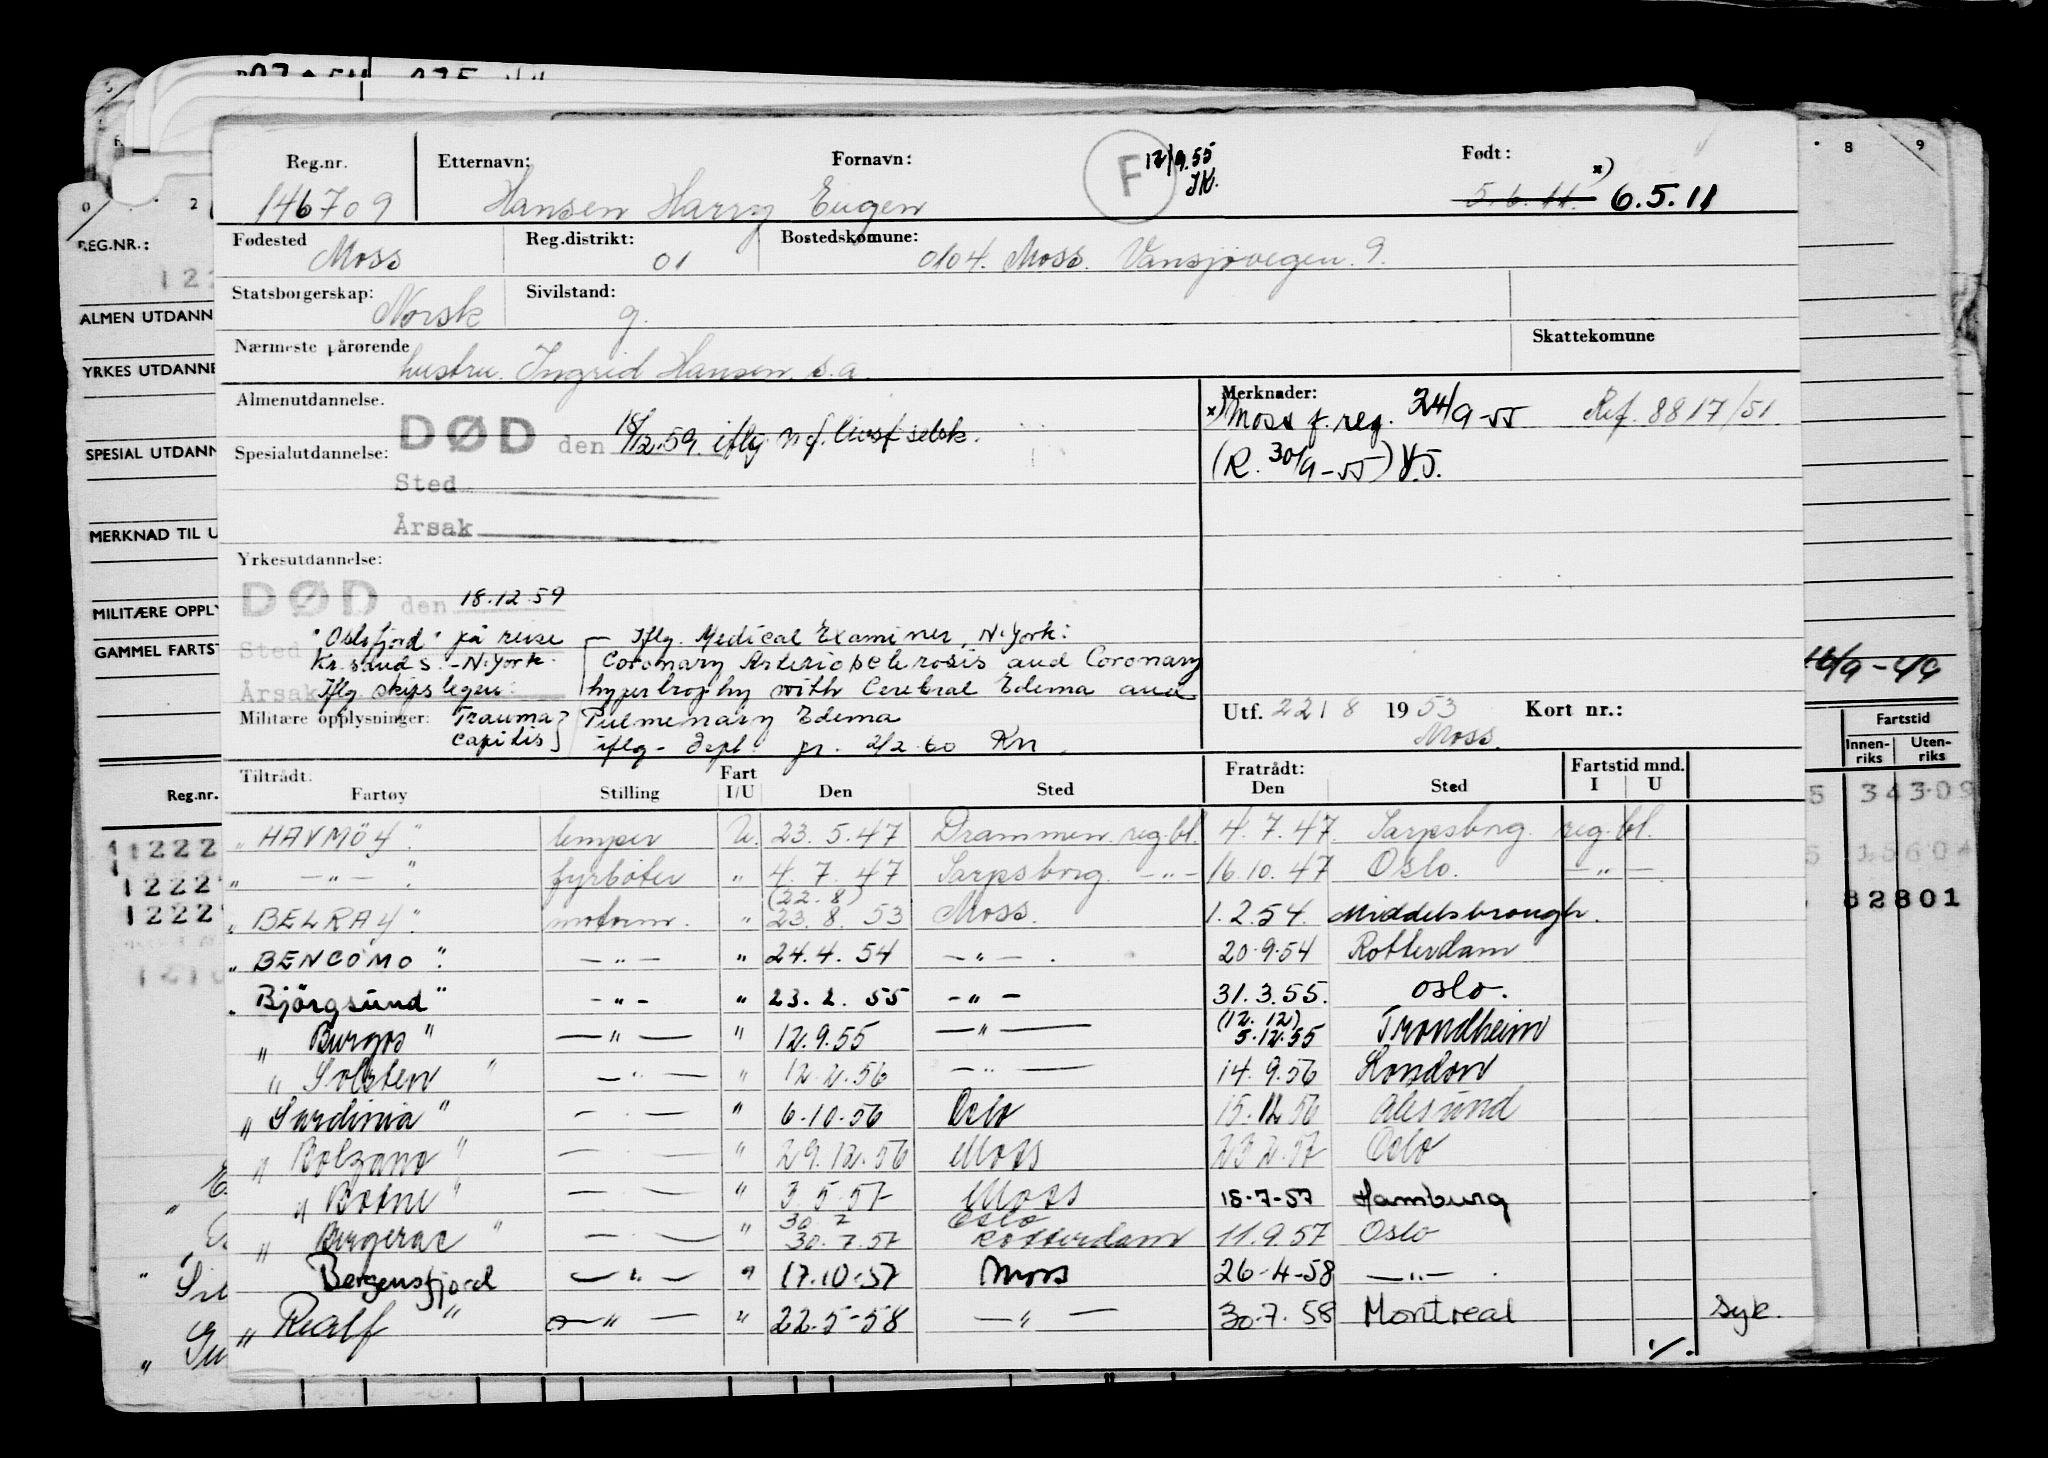 Reg.nr. Etternavn: Fornavn: F 12/9.55 Født: x)
146709 Hansen Harry Eugen JK. 5.6.11. 6.5.11
Fødested Reg.distrikt: Bostedskomune:
Moss 01 0104. Moss. Vansjøvegen. 9.
Statsborgerskap: Sivilstand:
Norsk g.
Nærmeste pårørende Skattekomune
hustru. Ingrid Hansen. s.a.
Almenutdannelse. Merknader:
DØD den 18/12.59. iflg. N.f. livsf selsk. x) Moss f. reg. 24/9-55 Ref. 8817/51.
Spesialutdannelse: (R. 30/9-55)
Sted
Årsak
Yrkesutdannelse:
DØD den 18.12.59
Sted "Oslofjord" på reise Iflg. Medical Examiner, N.York:
Kr.sand S. - N.York. Coronary Arteriosclerosis and Coronary
Årsak Iflg. skipslegen: hypertrophy with Cerebral Edema and
Militære opplysninger: Trauma Pulmenary Edema Utf. 22/8 1953 Kort nr.:
capitis iflg. Dept. pr. 2/2.60 KN Moss.
Tiltrådt: Fart Fratrådt: Fartstid mnd.
Fartøy Stilling I/U Den Sted Den Sted I U
" HAVMÖY " lemper U. 23.5.47 Drammen reg.bl. 4.7.47. Sarpsborg reg.bl.
" — " — " fyrbøter " 4.7.47 Sarpsborg. — " — 16.10.47 Oslo. — " —
(22.8)
" BELRAY " motorm. " 23.8.53 Moss. 1.2.54. Middelsbrough.
" BENCOMO " — " — " 24.4.54 — " — . 20.9.54 Rotterdam
" Björgsund " — " — " 23.2.55 — " — 31.3.55. Oslo.
(12.12)
" Burgos " — " — " 12.9.55 — " — 5.12.55 Trondheim
" Solsten " — " — " 12.2.56 — " — 14.9.56 London
" Sardinia " — " — " 6.10.56 Oslo 15.12.56 Ålesund
" Bolzano " — " — " 29.12.56 Moss 23.2.57 Oslo
" Botne " — " — " 3.5.57 Moss 18.7.57 Hamburg
30 7 Oslo
" Bergerac " — " — " 30.7.57 Rotterdam 11.9.57 Oslo
Bergensfjord — " — " 17.10.57 Moss 26.4-58 — " — .
" Realf " — " — " 22.5-58 — " — 30.7.58 Montreal Syk.
./.
REG.NR.:
ALMEN UTDANN
YRKES UTDANNE
SPESIAL UTDANN
MERKNAD TIL U
MILITÆRE OPPLY
GAMMEL FARTS
Reg.nr.
8 9
Fartstid
Innen-
riks
Uten-
riks
34309
15604
82801